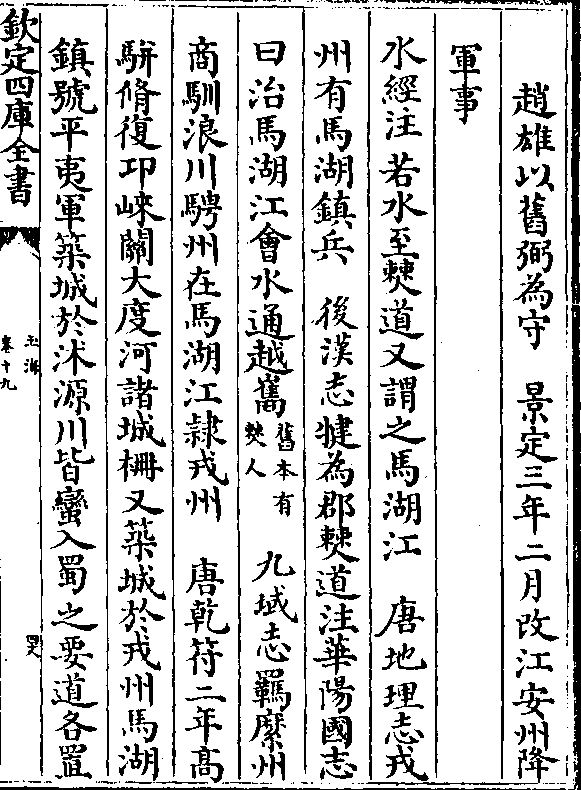 趙雄以舊弼為守　景定三年二月改江安州降
軍事
水經注若水至僰道又謂之馬湖江　唐地理志戎
州有馬湖鎮兵　後漢志犍為郡僰道注華陽國志
曰治馬湖江會水通越嶲舊本有僰人　九域志羈縻州
商馴浪川騁州在馬湖江隷戎州　唐乾符二年髙
駢脩復卭崍關大度河諸城柵又築城於戎州馬湖
鎮號平夷軍築城於沐源川皆蠻入蜀之要道各置
欽定四庫全書
玉海
卷十九